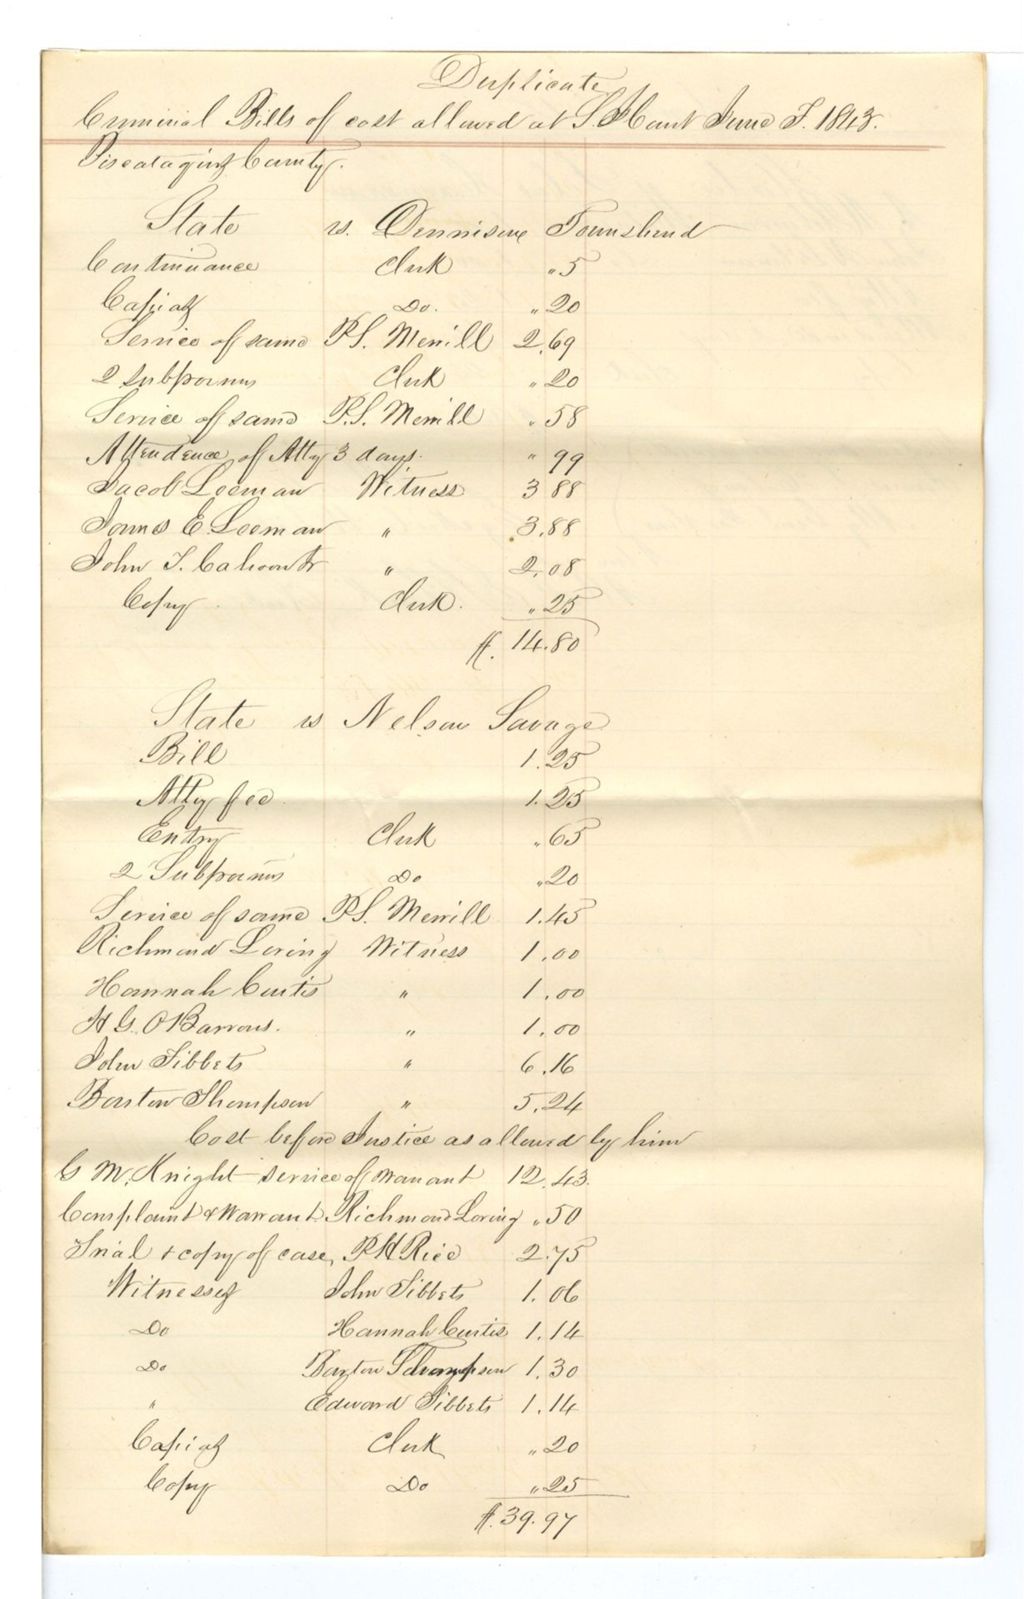 Duplicate
Criminal Bills of cost allowed at S. J. Court June T. 1843.
Piscataquis County.
State vs. Dennison Townshend
Continuance Clerk " 5
Capias Do. " 20
Service of same P.S. Merrill 2.69
2 Subpoenas Clerk " 20
Service of same P.S. Merrill " 58
Attendence of Atty 3 days. " 99
Jacob Leeman Witness 3 88
James E. Leeman " 3.88
John T. Calhoon Jr " 2.08
Copy Clerk. " 25
$. 14.80
State vs Nelson Savage
Bill 1.25
Atty fee 1.25
Entry Clerk " 65
2 Subpoenas Do " 20
Service of same P.S. Merrill 1.45
Richmond Loring Witness 1.00
Hannah Curtis " 1.00
H G. O Barrows. " 1.00
John Tibbets " 6.16
Barton Thompson " 5.24
Cost before Justice as allowed by him
G M. Knight service of warrant 12.43.
Complaint & Warrant Richmond Loring " 50
Trial & copy of case, P H Rice 2.75
Witnesses John Tibbets 1.06
Do Hannah Curtis 1.14
Do Barton Thompson 1.30
" Edward Tibbets 1.14
Capias Clerk " 20
Copy Do " 25
$. 39.97